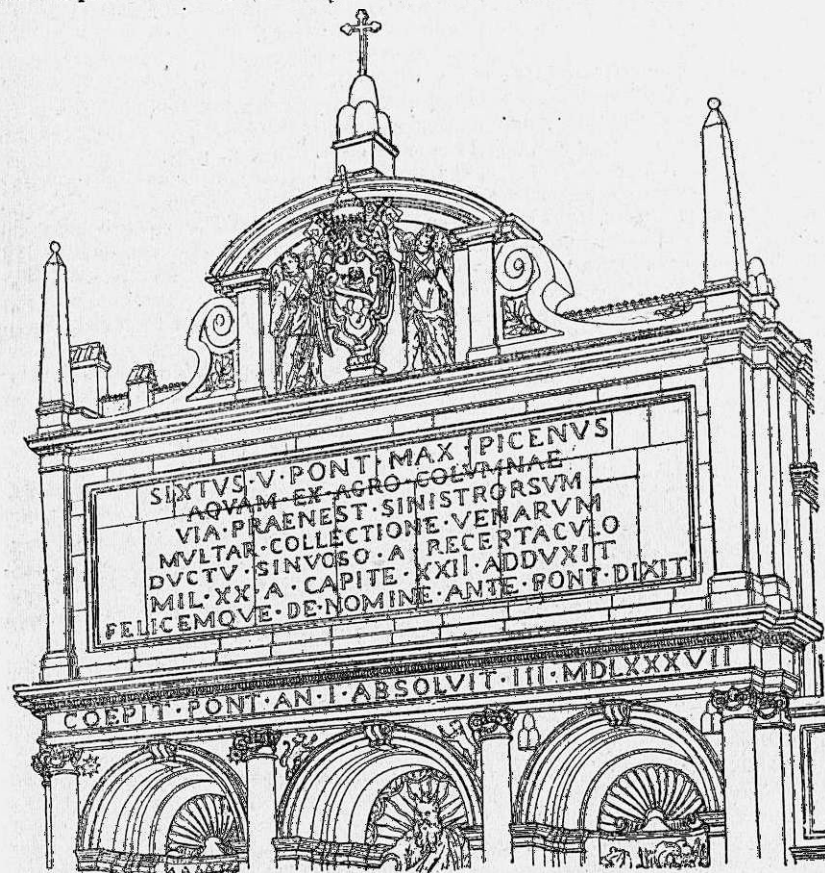 SIXTVS·V·PONT·MAX·PICENVS
AQVAM·EX·AGRO·COLVMNAE
VIA·PRAENEST·SINISTRORSVM
MVLTAR·COLLECTIONE·VENARVM
DVCTV·SINVOSO·A·RECERTACVLO
MIL·XX·A·CAPITE·XXII·ADDVXIT
FELICEMQVE·DE·NOMINE·ANTE·PONT·DIXIT
COEPIT·PONT·AN·I·ABSOLVIT·III·MDLXXXVII